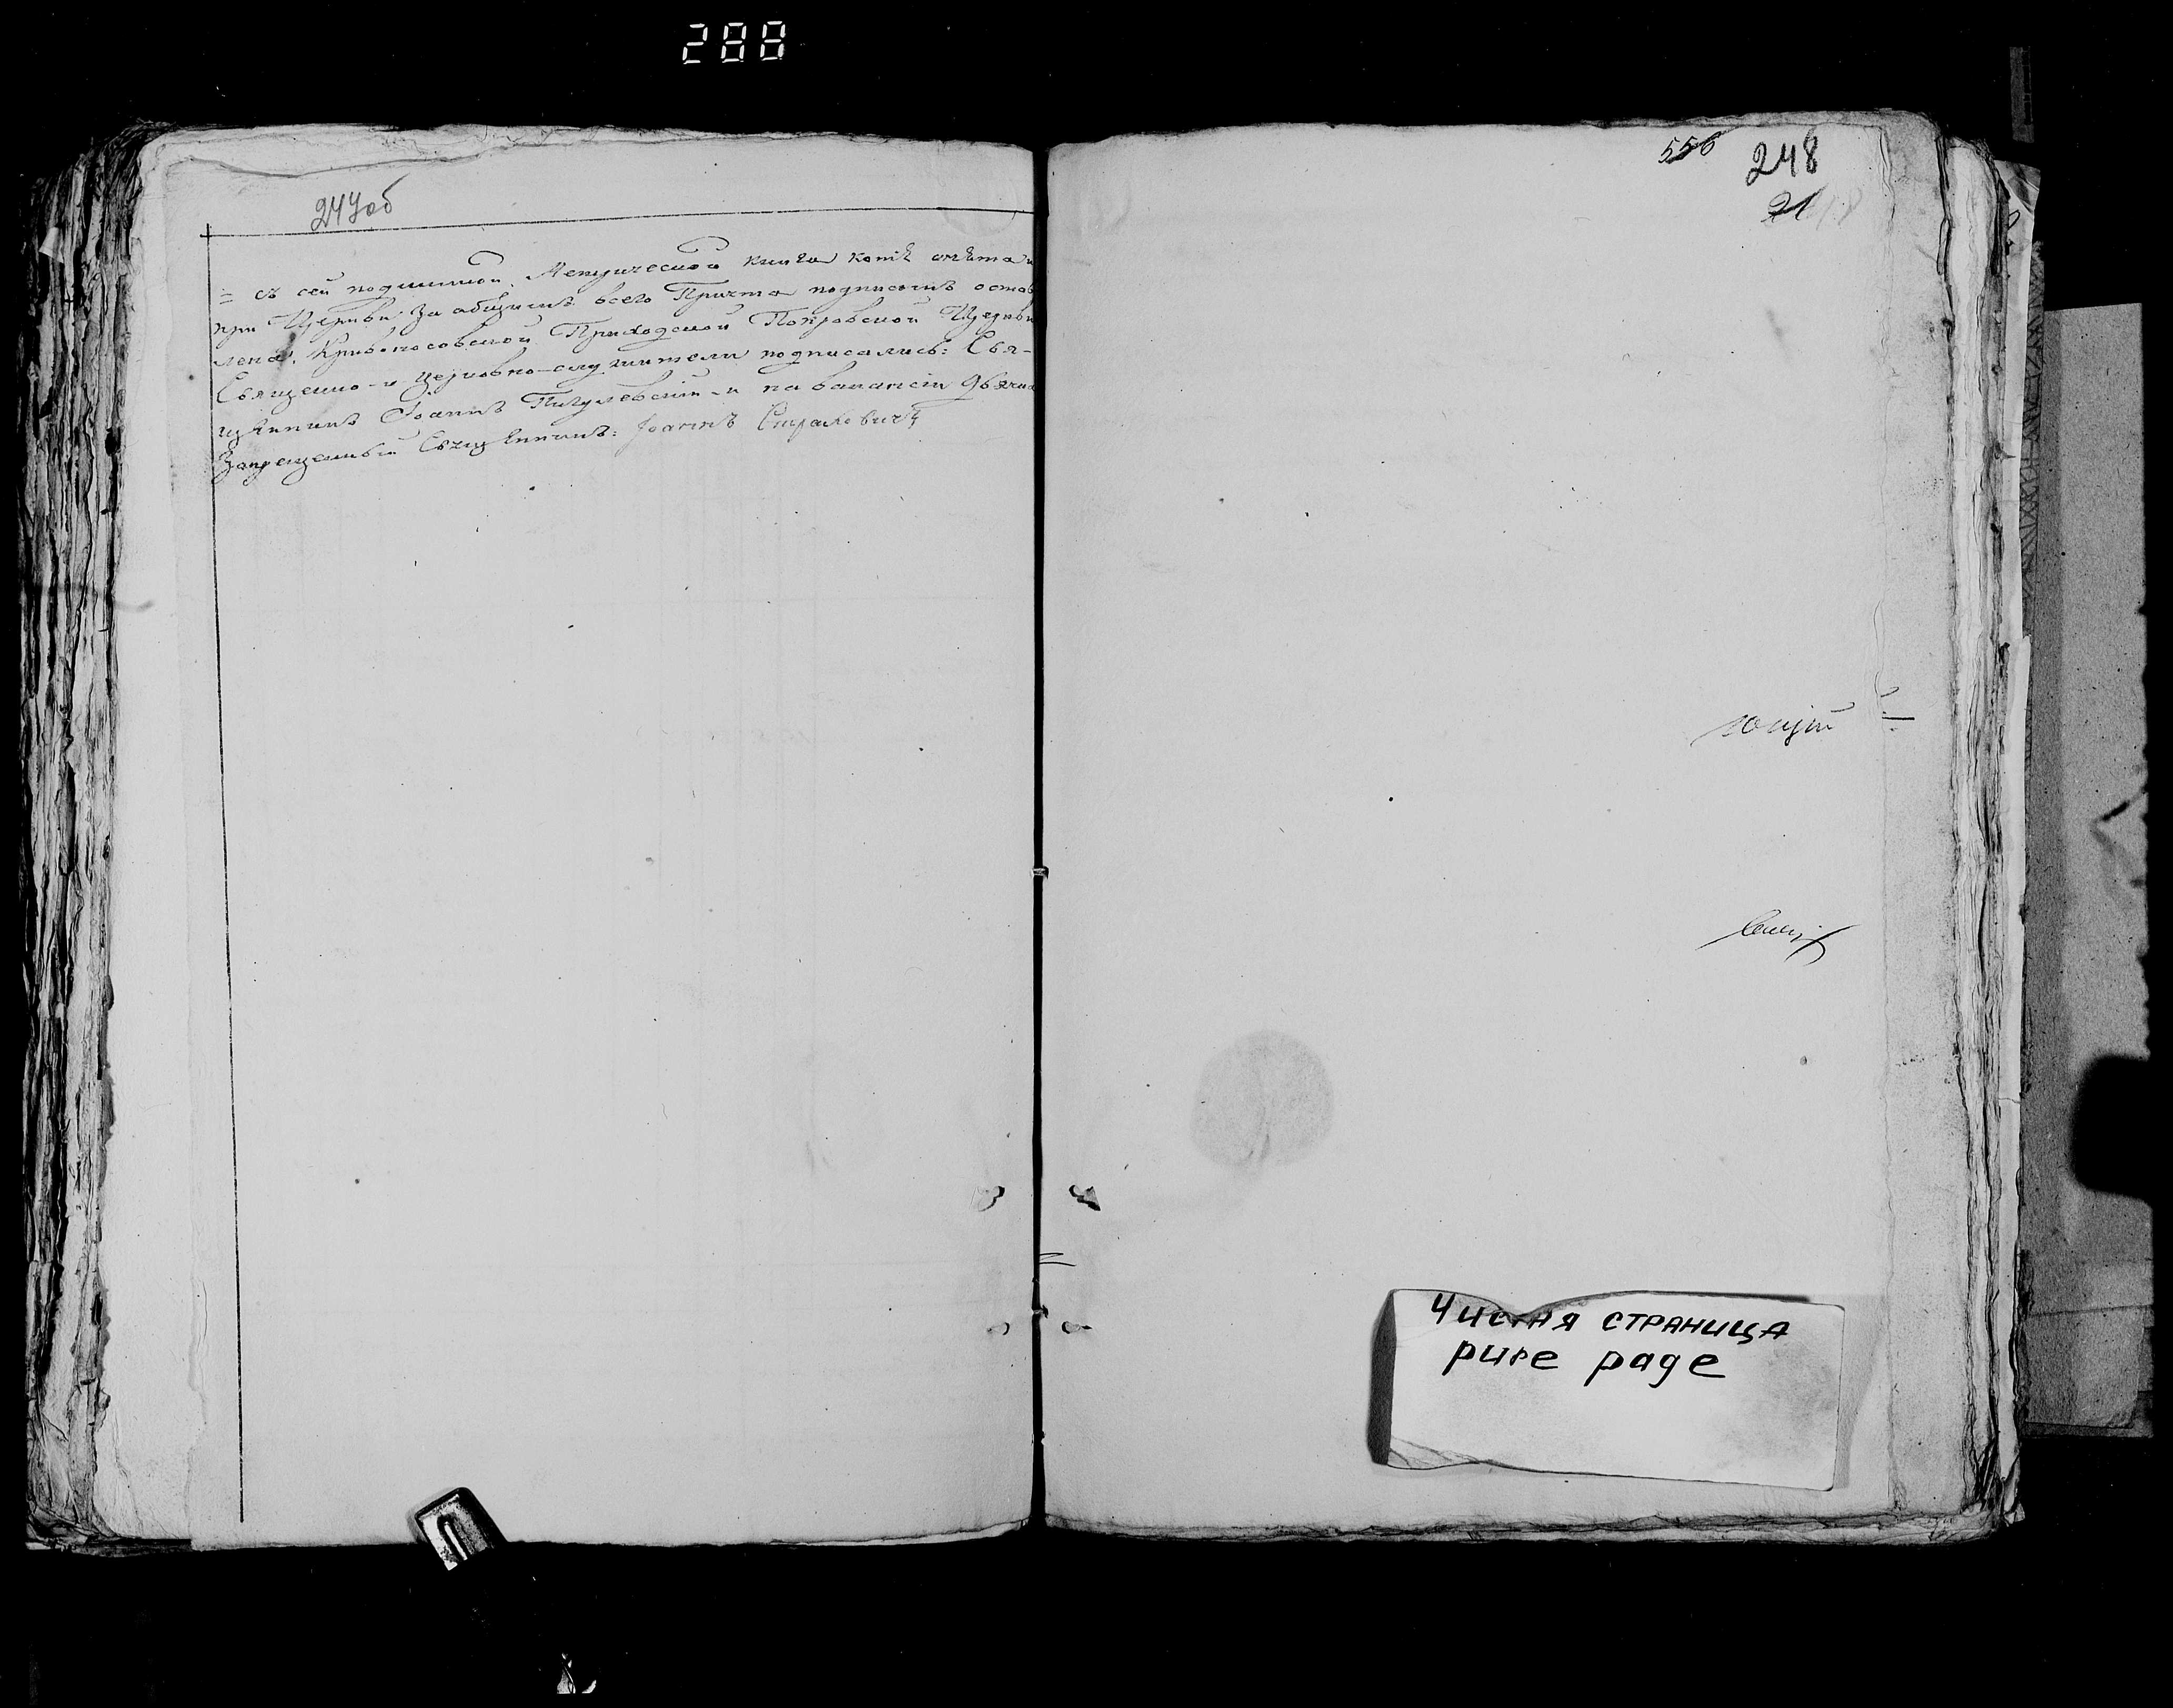 288
247об
= съ сей подлинной Метрической книги копіѣ
при Церкви за общимъ всего Причта подписомъ остав
лена. Кривоносовской Приходской Покровской Церкви
Священно-и церковно-служители подписались: Свя-
щенникъ Іоаннъ и на вакансіи
Запрещенный Священникъ: Іоаннъ Страховичъ
556 248
21
ющій
Чистая страница
pure page